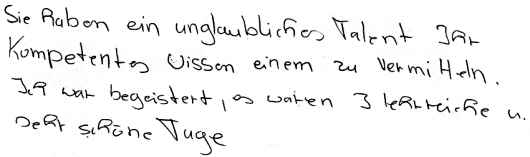 Sie haben ein unglaubliches Talent Ihr
Kompetentes Wissen einem zu vermitteln.
Ich war begeistert, es waren 3 lehrreiche u.
sehr schöne Tage